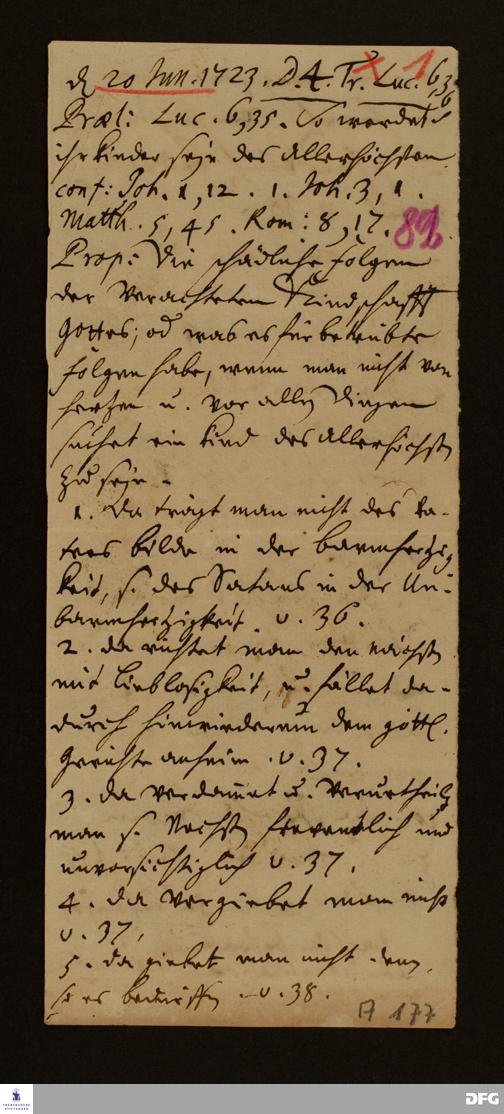 d 20 Jun. 1723. D. 4. Tr. Luc. 6,36
Præl: Luc. 6,35. So werdet
ihr kinder seyn des Allerhöchsten.
conf: Joh. 1, 12. 1. Joh. 3, 1.
Matth. 5, 45. Rom: 8, 17.
Prop: Die schädliche folgen
der Verachteten Kindschafft
Gottes; od was es für betrübte
folgen habe, wenn man nicht von
hertzen u. vor allen Dingen
suchet ein kind des Allerhöchsten
zu seyn.
1. Da trägt man nicht des Va-
ters bilde in der barmhertzig-
keit, s. des Satans in der Un-
barmhertzigkeit. v. 36.
2. da richtet man den nächsten
mit Lieblosigkeit, u. fället da-
durch hinwiederum dem göttl.
Gerichte anheim. v. 37.
3. da verdamet u. verurtheilt
man s. Nechsten freventlich und
unvorsichtiglich v. 37.
4. da vergiebet man nicht
v. 37.
5. da giebet man nicht denen,
so es bedürffen. v. 38.
A 177
FRANCKESCHE
STIFTUNGEN
DFG